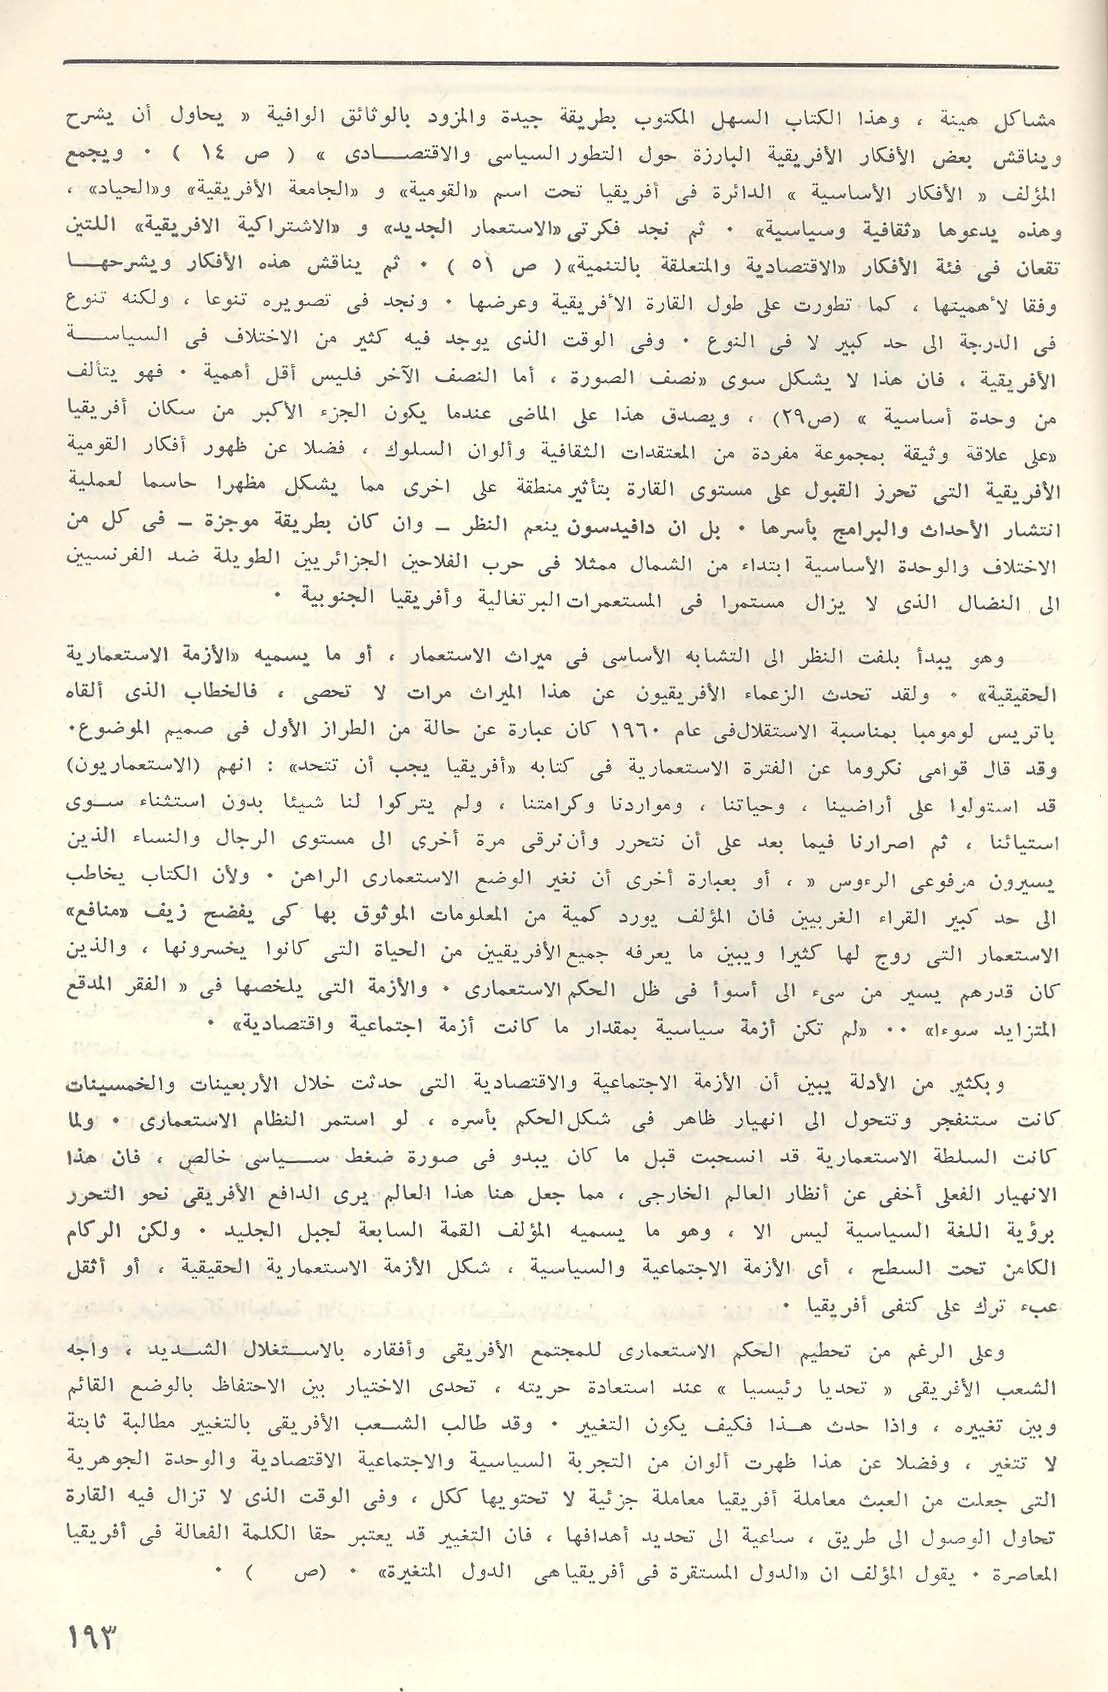 مشاكل هينة ، وهذا الكتاب السهل المكتوب بطريقة جيدة والمزود بالوثائق الوافية « يحاول أن يشرح
ويناقش بعض الأفكار الأفريقية البارزة حول التطور السياسى والاقتصادى » ( ص ١٤ ) ٠ ويجمع
المؤلف « الأفكار الأساسية » الدائرة فى أفريقيا تحت اسم «القومية» و «الجامعة الأفريقية» و«الحياد» ،
وهذه يدعوها «ثقافية وسياسية» ٠ ثم نجد فكرتى «الاستعمار الجديد» و «الاشتراكية الافريقية» اللتين
تقعان فى فئة الأفكار «الاقتصادية والمتعلقة بالتنمية» ( ص ٥١ ) ٠ ثم يناقش هذه الأفكار ويشرحها
وفقا لأهميتها ، كما تطورت على طول القارة الأفريقية وعرضها ٠ ونجد فى تصويره تنوعا ، ولكنه تنوع
فى الدرجة الى حد كبير لا فى النوع ٠ وفى الوقت الذى يوجد فيه كثير من الاختلاف فى السياسة
الأفريقية ، فان هذا لا يشكل سوى «نصف الصورة ، أما النصف الآخر فليس أقل أهمية ٠ فهو يتألف
من وحدة أساسية » (ص٢٩) ، ويصدق هذا على الماضى عندما يكون الجزء الأكبر من سكان أفريقيا
«على علاقة وثيقة بمجموعة مفردة من المعتقدات الثقافية وألوان السلوك ، فضلا عن ظهور أفكار القومية
الأفريقية التى تحرز القبول على مستوى القارة بتأثير منطقة على اخرى مما يشكل مظهرا حاسما لعملية
انتشار الأحداث والبرامج بأسرها ٠ بل ان دافيدسون ينعم النظر ــ وان كان بطريقة موجزة ــ فى كل من
الاختلاف والوحدة الأساسية ابتداء من الشمال ممثلا فى حرب الفلاحين الجزائريين الطويلة ضد الفرنسيين
الى النضال الذى لا يزال مستمرا فى المستعمرات البرتغالية وأفريقيا الجنوبية ٠
وهو يبدأ بلفت النظر الى التشابه الأساسى فى ميراث الاستعمار ، أو ما يسميه «الأزمة الاستعمارية
الحقيقية» ٠ ولقد تحدث الزعماء الأفريقيون عن هذا الميراث مرات لا تحصى ، فالخطاب الذى ألقاه
باتريس لومومبا بمناسبة الاستقلال فى عام ١٩٦٠ كان عبارة عن حالة من الطراز الأول فى صميم الموضوع٠
وقد قال قوامى نكروما عن الفترة الاستعمارية فى كتابه «أفريقيا يجب أن تتحد» : انهم (الاستعماريون)
قد استولوا على أراضينا ، وحياتنا ، ومواردنا وكرامتنا ، ولم يتركوا لنا شيئا بدون استثناء سوى
استيائنا ، ثم اصرارنا فيما بعد على أن نتحرر وأن نرقى مرة أخرى الى مستوى الرجال والنساء الذين
يسيرون مرفوعى الرءوس « ، أو بعبارة أخرى أن نغير الوضع الاستعمارى الراهن ٠ ولأن الكتاب يخاطب
الى حد كبير القراء الغربيين فان المؤلف يورد كمية من المعلومات الموثوق بها كى يفضح زيف «منافع»
الاستعمار التى روج لها كثيرا ويبين ما يعرفه جميع الأفريقيين من الحياة التى كانوا يخسرونها ، والذين
كان قدرهم يسير من سىء الى أسوأ فى ظل الحكم الاستعمارى ٠ والأزمة التى يلخصها فى « الفقر المدقع
المتزايد سوءا» ٠٠ «لم تكن أزمة سياسية بمقدار ما كانت أزمة اجتماعية واقتصادية» ٠
وبكثير من الأدلة يبين أن الأزمة الاجتماعية والاقتصادية التى حدثت خلال الأربعينات والخمسينات
كانت ستنفجر وتتحول الى انهيار ظاهر فى شكل الحكم بأسره ، لو استمر النظام الاستعمارى ٠ ولما
كانت السلطة الاستعمارية قد انسحبت قبل ما كان يبدو فى صورة ضغط سياسى خالص ، فان هذا
الانهيار الفعلى أخفى عن أنظار العالم الخارجى ، مما جعل هنا هذا العالم يرى الدافع الأفريقى نحو التحرر
برؤية اللغة السياسية ليس الا ، وهو ما يسميه المؤلف القمة السابعة لجبل الجليد ٠ ولكن الركام
الكامن تحت السطح ، أى الأزمة الاجتماعية والسياسية ، شكل الأزمة الاستعمارية الحقيقية ، أو أثقل
عبء ترك على كتفى أفريقيا ٠
وعلى الرغم من تحطيم الحكم الاستعمارى للمجتمع الأفريقى وأفقاره بالاستغلال الشديد ، واجه
الشعب الأفريقى « تحديا رئيسيا » عند استعادة حريته ، تحدى الاختيار بين الاحتفاظ بالوضع القائم
وبين تغييره ، واذا حدث هذا فكيف يكون التغيير ٠ وقد طالب الشعب الأفريقى بالتغيير مطالبة ثابتة
لا تتغير ، وفضلا عن هذا ظهرت ألوان من التجربة السياسية والاجتماعية الاقتصادية والوحدة الجوهرية
التى جعلت من العبث معاملة أفريقيا معاملة جزئية لا تحتويها ككل ، وفى الوقت الذى لا تزال فيه القارة
تحاول الوصول الى طريق ، ساعية الى تحديد أهدافها ، فان التغيير قد يعتبر حقا الكلمة الفعالة فى أفريقيا
المعاصرة ٠ يقول المؤلف ان «الدول المستقرة فى أفريقيا هى الدول المتغيرة» ٠ (ص ) ٠
١٩٣